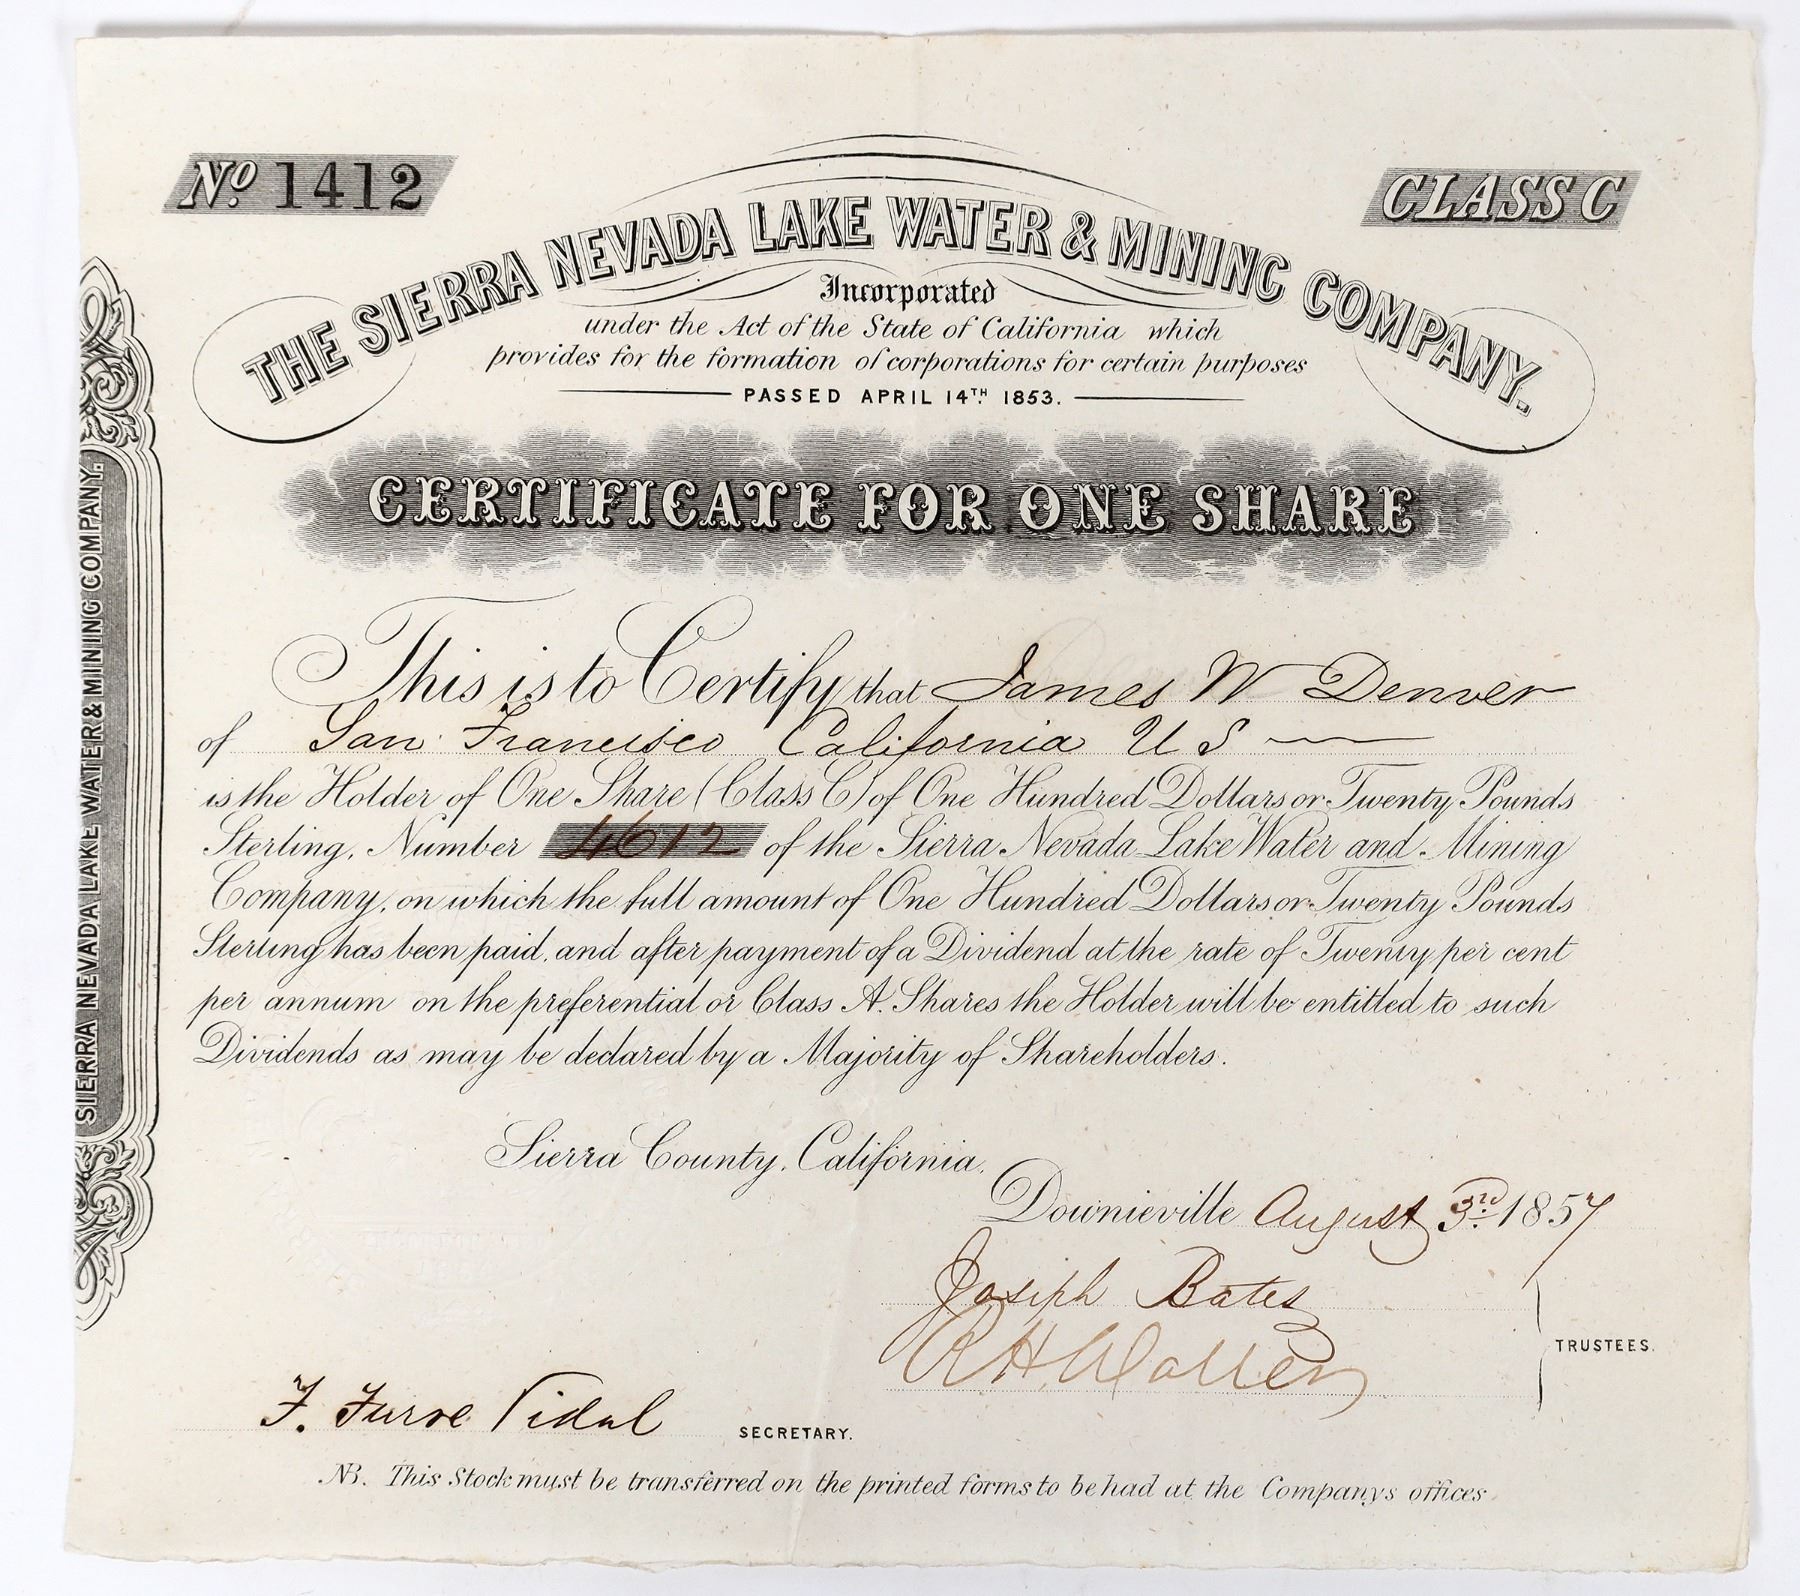 No. 1412
CLASS C
THE SIERRA NEVADA LAKE WATER & MINING COMPANY.
Incorporated
under the Act of the State of California which
provides for the formation of corporations for certain purposes
PASSED APRIL 14TH 1853.
CERTIFICATE FOR ONE SHARE
This is to Certify that James W Denver
of San Francisco California U S
is the Holder of One Share (Class C) of One Hundred Dollars or Twenty Pounds
Sterling, Number 4612 of the Sierra Nevada Lake Water and Mining
Company, on which the full amount of One Hundred Dollars or Twenty Pounds
Sterling has been paid, and after payment of a Dividend at the rate of Twenty per cent
per annum on the preferential or Class A. Shares the Holder will be entitled to such
Dividends as may be declared by a Majority of Shareholders.
Sierra County, California.
Downieville August 3rd 1857
Joseph Bates
R H
TRUSTEES.
F. Vidal
SECRETARY.
NB. This Stock must be transferred on the printed forms to be had at the Companys offices
SIERRA NEVADA LAKE WATER & MINING COMPANY.